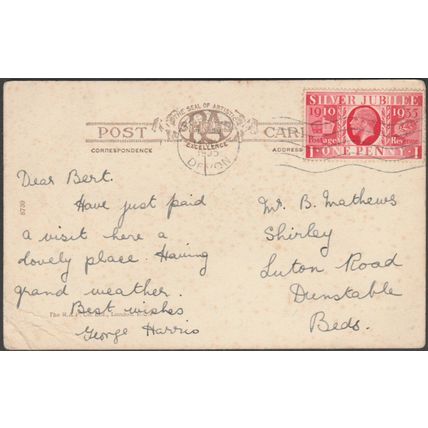 THE SEAL OF ARTISTIC
POST CARD
EXCELLENCE
CORRESPONDENCE
ADDRESS
1935
DEVON
SILVER JUBILEE
1910 1935
Postage Revenue
1 ONE PENNY 1
Dear Bert.
Have just paid
a visit here a
lovely place. Having
grand weather.
Best wishes
George Harris
Mr. B. Mathews
Shirley
Luton Road
Dunstable
Beds.
8730
The R.A. London